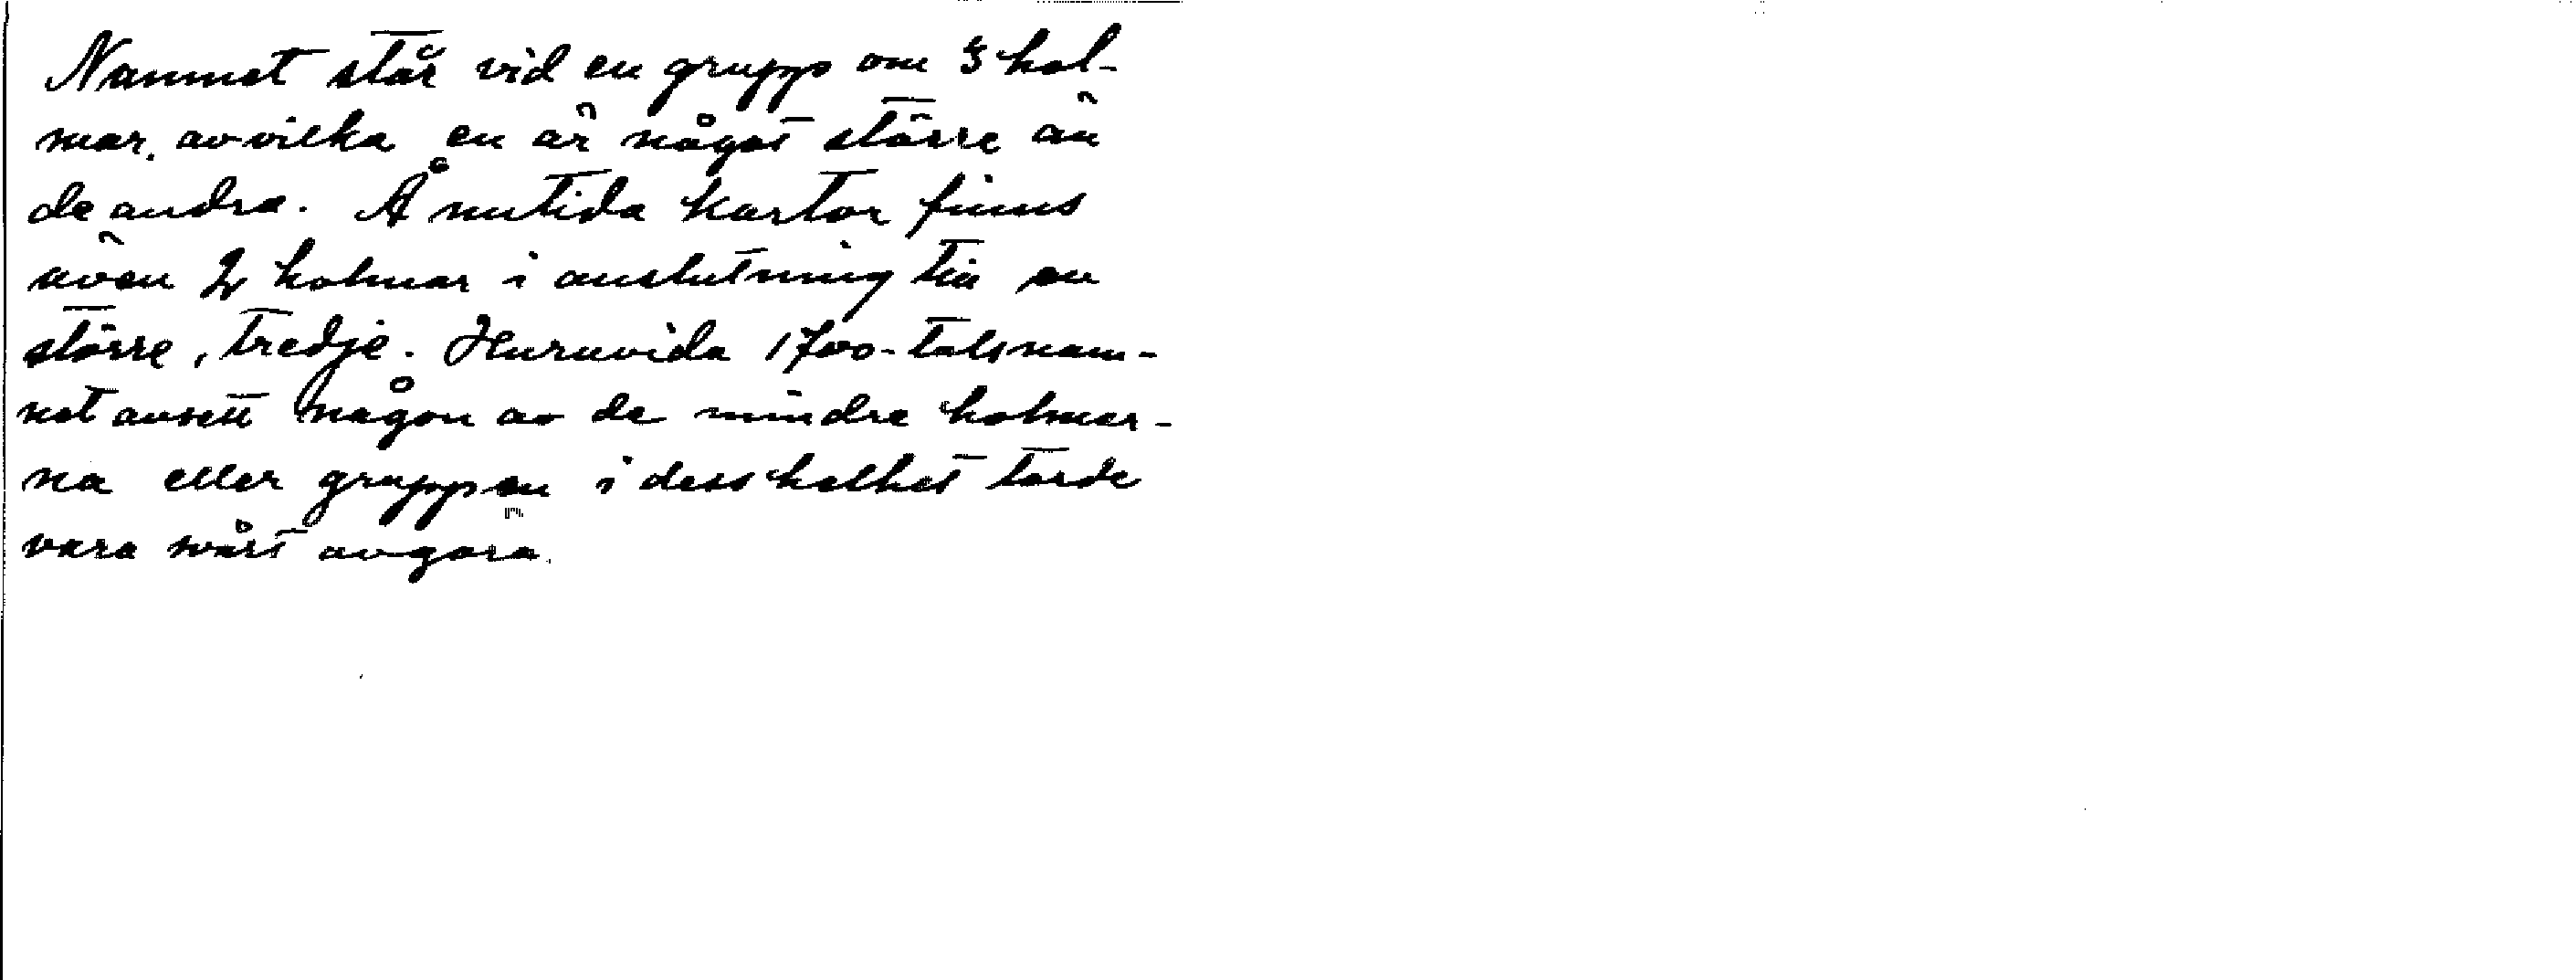 Namnet står vid en grupp om 3 hol-
mar, av vilka en är något större än
de andra. Å nutida kartor finns
även 2 holmar i anslutning till en
större, tredje. Huruvida 1700-talsnam-
net avsett någon av de mindre holmar-
na eller gruppen i dess helhet torde
vara svårt avgöra.